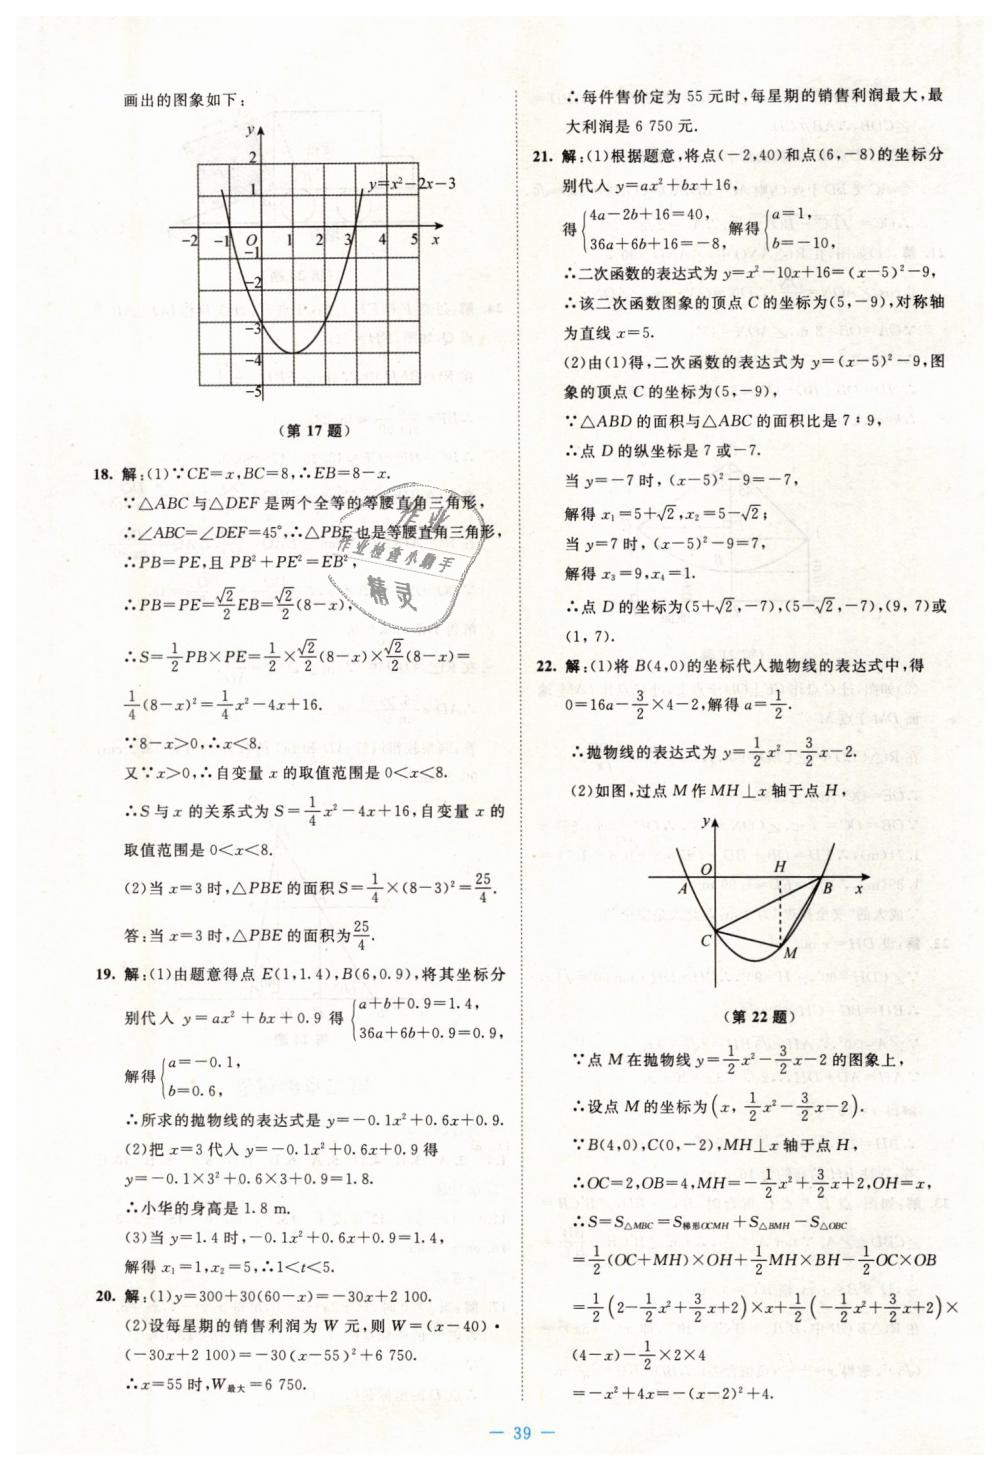 画出的图象如下:
y
2
1
y=x²-2x-3
-2 -1 O 1 2 3 4 5 x
-1
-2
-3
-4
-5
(第 17 题)
18. 解:(1)∵CE=x,BC=8,∴EB=8-x.
∵△ABC与△DEF是两个全等的等腰直角三角形,
∴∠ABC=∠DEF=45°,∴△PBE也是等腰直角三角形,
∴PB=PE,且 PB²+PE²=EB²,
∴PB=PE=√2/2 EB=√2/2(8-x),
∴S=1/2 PB×PE=1/2×√2/2(8-x)×√2/2(8-x)=
1/4(8-x)²=1/4x²-4x+16.
∵8-x>0,∴x<8.
又∵x>0,∴自变量 x 的取值范围是 0<x<8.
∴S 与 x 的关系式为 S=1/4x²-4x+16,自变量 x 的
取值范围是 0<x<8.
(2)当 x=3 时,△PBE 的面积 S=1/4×(8-3)²=25/4.
答:当 x=3 时,△PBE 的面积为25/4.
19. 解:(1)由题意得点 E(1,1.4),B(6,0.9),将其坐标分
别代人 y=ax²+bx+0.9 得 {a+b+0.9=1.4,
36a+6b+0.9=0.9,
解得{a=-0.1,
b=0.6,
∴所求的抛物线的表达式是 y=-0.1x²+0.6x+0.9.
(2)把 x=3 代人 y=-0.1x²+0.6x+0.9 得
y=-0.1×3²+0.6×3+0.9=1.8.
∴小华的身高是 1.8 m.
(3)当 y=1.4 时,-0.1x²+0.6x+0.9=1.4,
解得 x₁=1,x₂=5,∴1<t<5.
20. 解:(1)y=300+30(60-x)=-30x+2 100.
(2)设每星期的销售利润为 W 元,则 W=(x-40)·
(-30x+2 100)=-30(x-55)²+6 750.
∴x=55 时,W最大=6 750.
∴每件售价定为 55 元时,每星期的销售利润最大,最
大利润是 6 750 元.
21. 解:(1)根据题意,将点(-2,40)和点(6,-8)的坐标分
别代人 y=ax²+bx+16,
得{4a-2b+16=40, 解得{a=1,
36a+6b+16=-8, b=-10,
∴二次函数的表达式为 y=x²-10x+16=(x-5)²-9,
∴该二次函数图象的顶点 C 的坐标为(5,-9),对称轴
为直线 x=5.
(2)由(1)得,二次函数的表达式为 y=(x-5)²-9,图
象的顶点 C 的坐标为(5,-9),
∵△ABD 的面积与△ABC 的面积比是 7∶9,
∴点 D 的纵坐标是 7 或-7.
当 y=-7 时,(x-5)²-9=-7,
解得 x₁=5+√2,x₂=5-√2;
当 y=7 时,(x-5)²-9=7,
解得 x₃=9,x₄=1.
∴点 D 的坐标为(5+√2,-7),(5-√2,-7),(9,7)或
(1,7).
22. 解:(1)将 B(4,0)的坐标代人抛物线的表达式中,得
0=16a-3/2×4-2,解得 a=1/2.
∴抛物线的表达式为 y=1/2x²-3/2x-2.
(2)如图,过点 M 作 MH⊥x 轴于点 H,
y
O H
A B x
C
M
(第 22 题)
∵点 M 在抛物线 y=1/2x²-3/2x-2 的图象上,
∴设点 M 的坐标为(x,1/2x²-3/2x-2).
∵B(4,0),C(0,-2),MH⊥x 轴于点 H,
∴OC=2,OB=4,MH=-1/2x²+3/2x+2,OH=x,
∴S=S△MBC=S梯形OCMH+S△BMH-S△OBC
=1/2(OC+MH)×OH+1/2MH×BH-1/2OC×OB
=1/2(2-1/2x²+3/2x+2)×x+1/2(-1/2x²+3/2x+2)×
(4-x)-1/2×2×4
=-x²+4x=-(x-2)²+4.
— 39 —
作业
作业检查小帮手
精灵